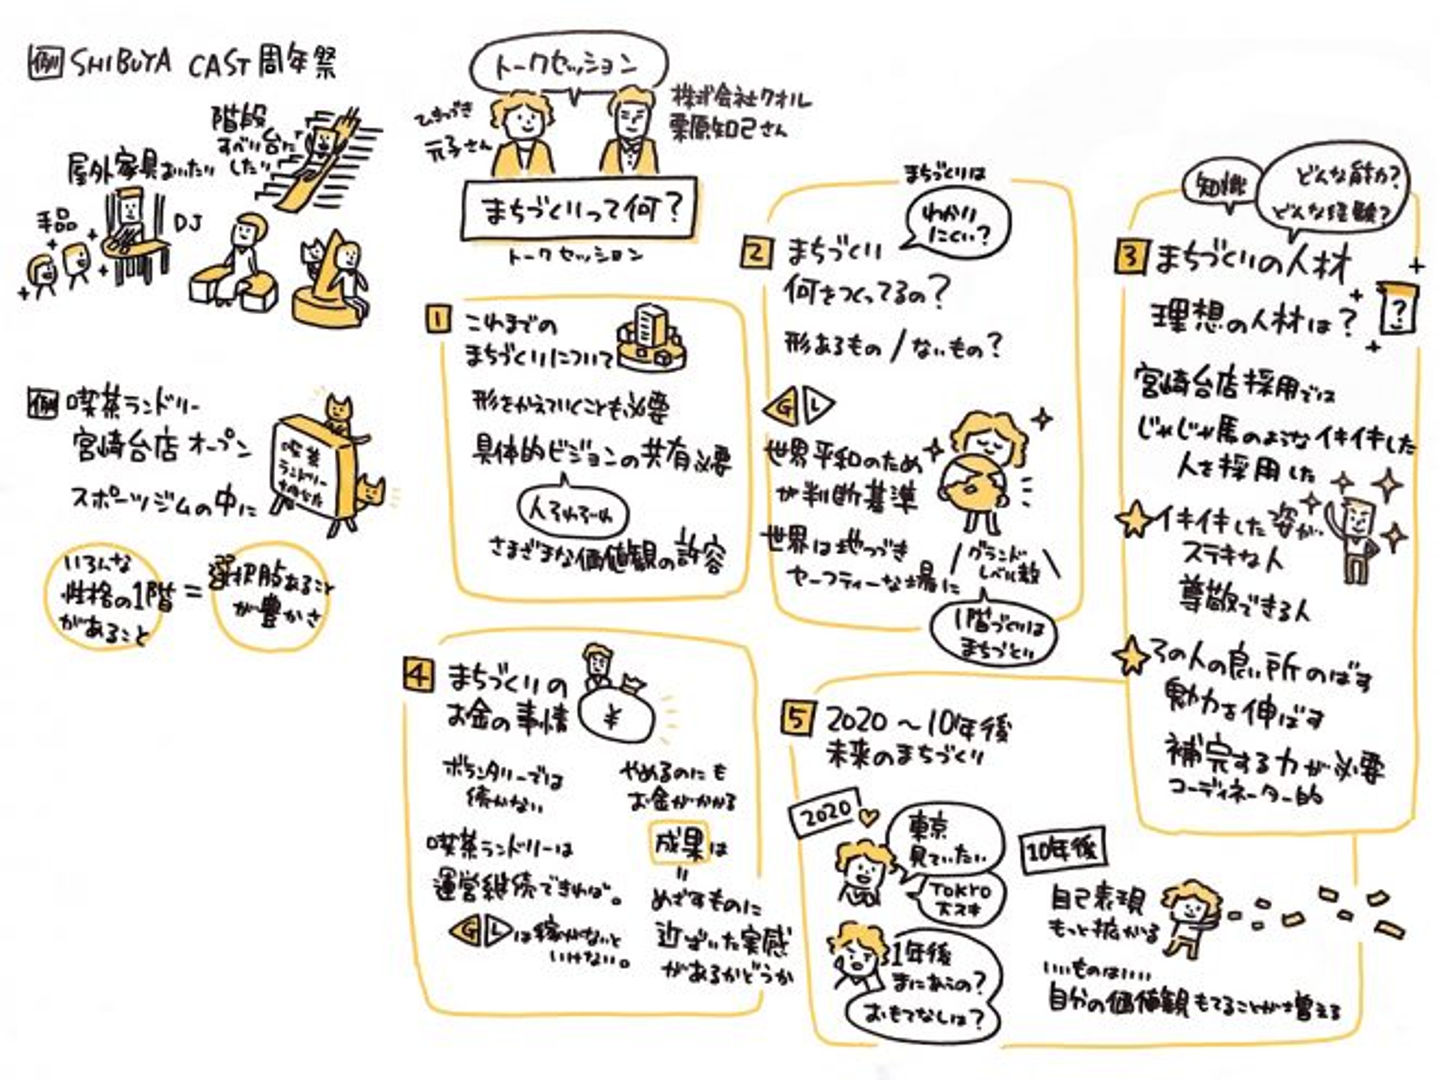 例 SHIBUYA CAST周年祭
階段
すべり台に
したい
屋外家具おいたり
手品
DJ
例 喫茶ランドリー
宮崎台店 オープン
スポーツジムの中に
喫茶
ランドリー
宮崎台店
いろんな
性格の1階
があること
=
選択肢あること
が豊かさ
トークセッション
元子さん
株式会社クオル
栗原知己さん
まちづくりって何?
トークセッション
1 これまでの
まちづくりについて
形をかえていくことも必要
具体的ビジョンの共有必要
人それぞれ
さまざまな価値観の許容
まちづくりは
わかり
にくい?
2 まちづくり
何をつくってるの?
形あるもの/ないもの?
G L
世界平和のため
が判断基準
世界は地つづき
セーフティーな場に
グランド
レベル数
1階づくりは
まちづくり
知識
どんな能力?
どんな経験?
3 まちづくりの人材
理想の人材は?
?
宮崎台店採用では
じゃじゃ馬のようなイキイキした
人を採用した
イキイキした姿が
ステキな人
尊敬できる人
その人の良い所のばす
魅力を伸ばす
補完する力が必要
コーディネーター的
4 まちづくりの
お金の事情
¥
ボランタリーでは
続かない
喫茶ランドリーは
運営継続できれば。
G Lは稼がないと
いけない。
やめるのにも
お金がかかる
成果は
=
めざすものに
近づいた実感
があるかどうか
5 2020〜10年後
未来のまちづくり
2020
東京
見ていたい
TOKYO
大スキ
1年後
まにあうの?
おもてなしは?
10年後
自己表現
もっと拡がる
いいものはいい
自分の価値観もてることが増える